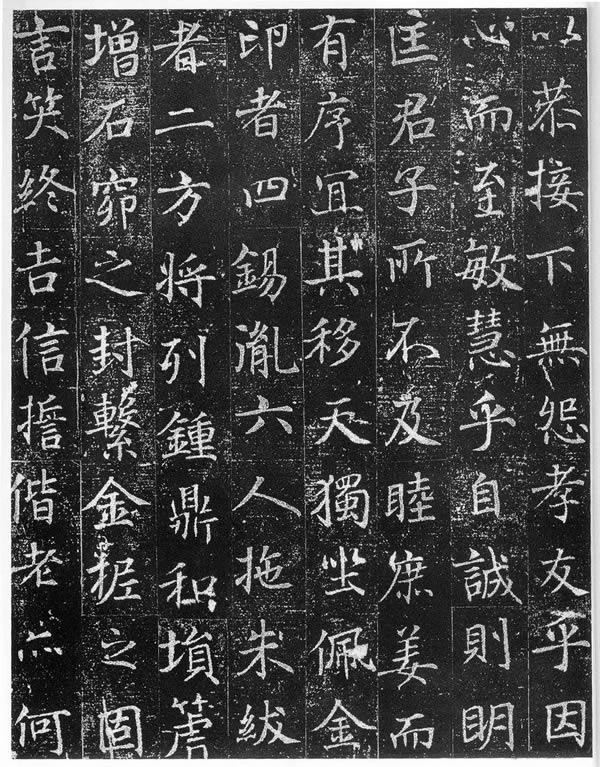 以恭接下無怨孝友乎因
心而至敏慧乎自誠則明
匡君子所不及睦庶姜而
有序宜其移天獨坐佩金
印者四錫胤六人拖朱紱
者二方將列鍾鼎和塤箎
增石窌之封繫金柅之固
言笑終吉信擔偕老亦何